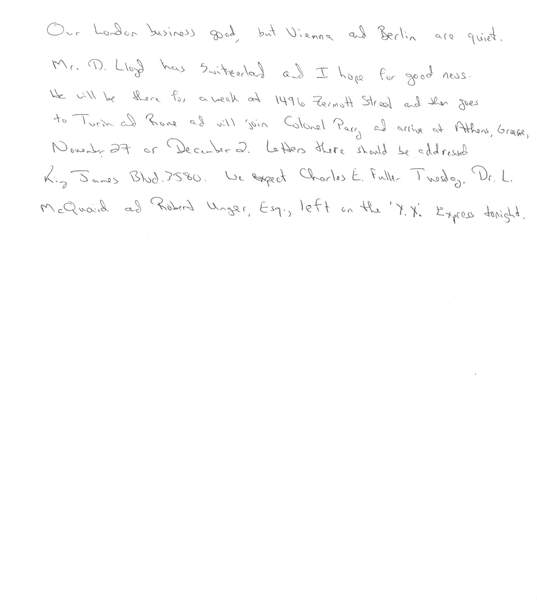 Our London business good, but Vienna and Berlin are quiet.
Mr. D. Lloyd has Switzerland and I hope for good news.
He will be there for a week at 1496 Zermott Street and then goes
to Turin ad Rome ad will join Colonel Parry ad arrive at Athens, Greece,
November 27 or December 2. Letters there should be addressed
King James Blvd. 7580. We expect Charles E. Fuller Tuesday. Dr. L.
McQuaid ad Robert Unger, Esq., left on the 'Y.X.' Express tonight.